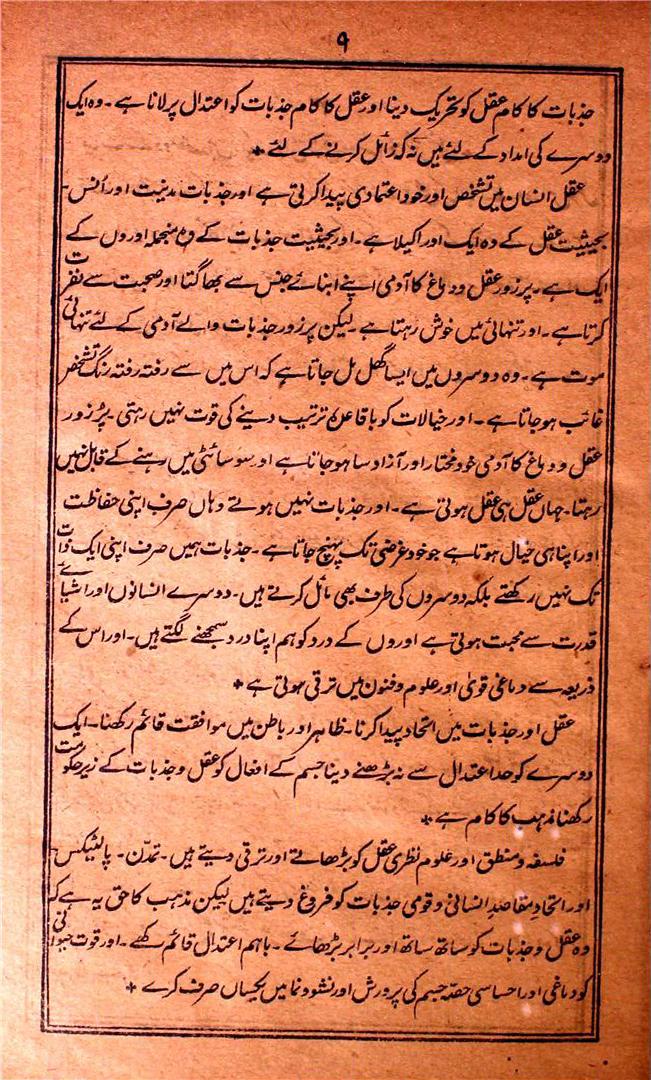 ۹
جذبات کا کام عقل کو تحریک دینا اور عقل کا کام جذبات کو اعتدال پر لانا ہے۔ وہ ایک
دوسرے کی امداد کے لئے ہیں نہ کہ زائل کرنے کے لئے *
عقل انسان میں تشخص اور خود اعتمادی پیدا کرتی ہے اور جذبات مدنیت اور اُنس۔
بحیثیت عقل کے وہ ایک اور اکیلا ہے۔ اور بحیثیت جذبات کے وہ منجملہ اوروں کے
ایک ہے۔ پرزور عقل و دماغ کا آدمی اپنے ابنائے جنس سے بھاگتا اور صحبت سے نفرت
کرتا ہے۔ اور تنہائی میں خوش رہتا ہے۔ لیکن پرزور جذبات والے آدمی کے لئے تنہائی
موت ہے۔ وہ دوسروں میں ایسا گھل مل جاتا ہے کہ اس میں سے رفتہ رفتہ رنگ تشخص
غائب ہوجاتا ہے۔ اور خیالات کو باقاعدہ ترتیب دینے کی قوت نہیں رہتی۔ پرُ زور
عقل و دماغ کا آدمی خود مختار اور آزاد سا ہو جاتا ہے اور سوسائٹی میں رہنے کے قابل نہیں
رہتا۔ جہاں عقل ہی عقل ہوتی ہے۔ اور جذبات نہیں ہوتے وہاں صرف اپنی حفاظت
اور اپنا ہی خیال ہوتا ہے جو خود غرضی تک پہنچ جاتا ہے۔ جذبات ہمیں صرف اپنی ایک ذات
تک نہیں رکھتے بلکہ دوسروں کی طرف بھی مائل کرتے ہیں۔ دوسرے انسانوں اور اشیائے
قدرت سے محبت ہوتی ہے اوروں کے درد کو ہم اپنا درد سمجھنے لگتے ہیں۔ اور اس کے
ذریعہ سے دماغی قویٰ اور علوم و فنون میں ترقی ہوتی ہے *
عقل اور جذبات میں اتحاد پیدا کرنا۔ ظاہر اور باطن میں موافقت قائم رکھنا۔ ایک
دوسرے کو حد اعتدال سے نہ بڑھنے دینا جسم کے افعال کو عقل و جذبات کے زیر حکومت
رکھنا مذہب کا کام ہے *
فلسفہ و منطق اور علوم نظری عقل کو بڑھاتے اور ترقی دیتے ہیں۔ تمدّن۔ پالٹیکس۔
اور اتحادِ مقاصدِ انسانی و قومی جذبات کو فروغ دیتے ہیں لیکن مذہب کا حق یہ ہے کہ
وہ عقل و جذبات کو ساتھ ساتھ اور برابر بڑھائے۔ باہم اعتدال قائم رکھے۔ اور قوت حیوانی
کو دماغی اور احساسی حصّہ جسم کی پرورش اور نشو و نما میں یکساں صرف کرے *